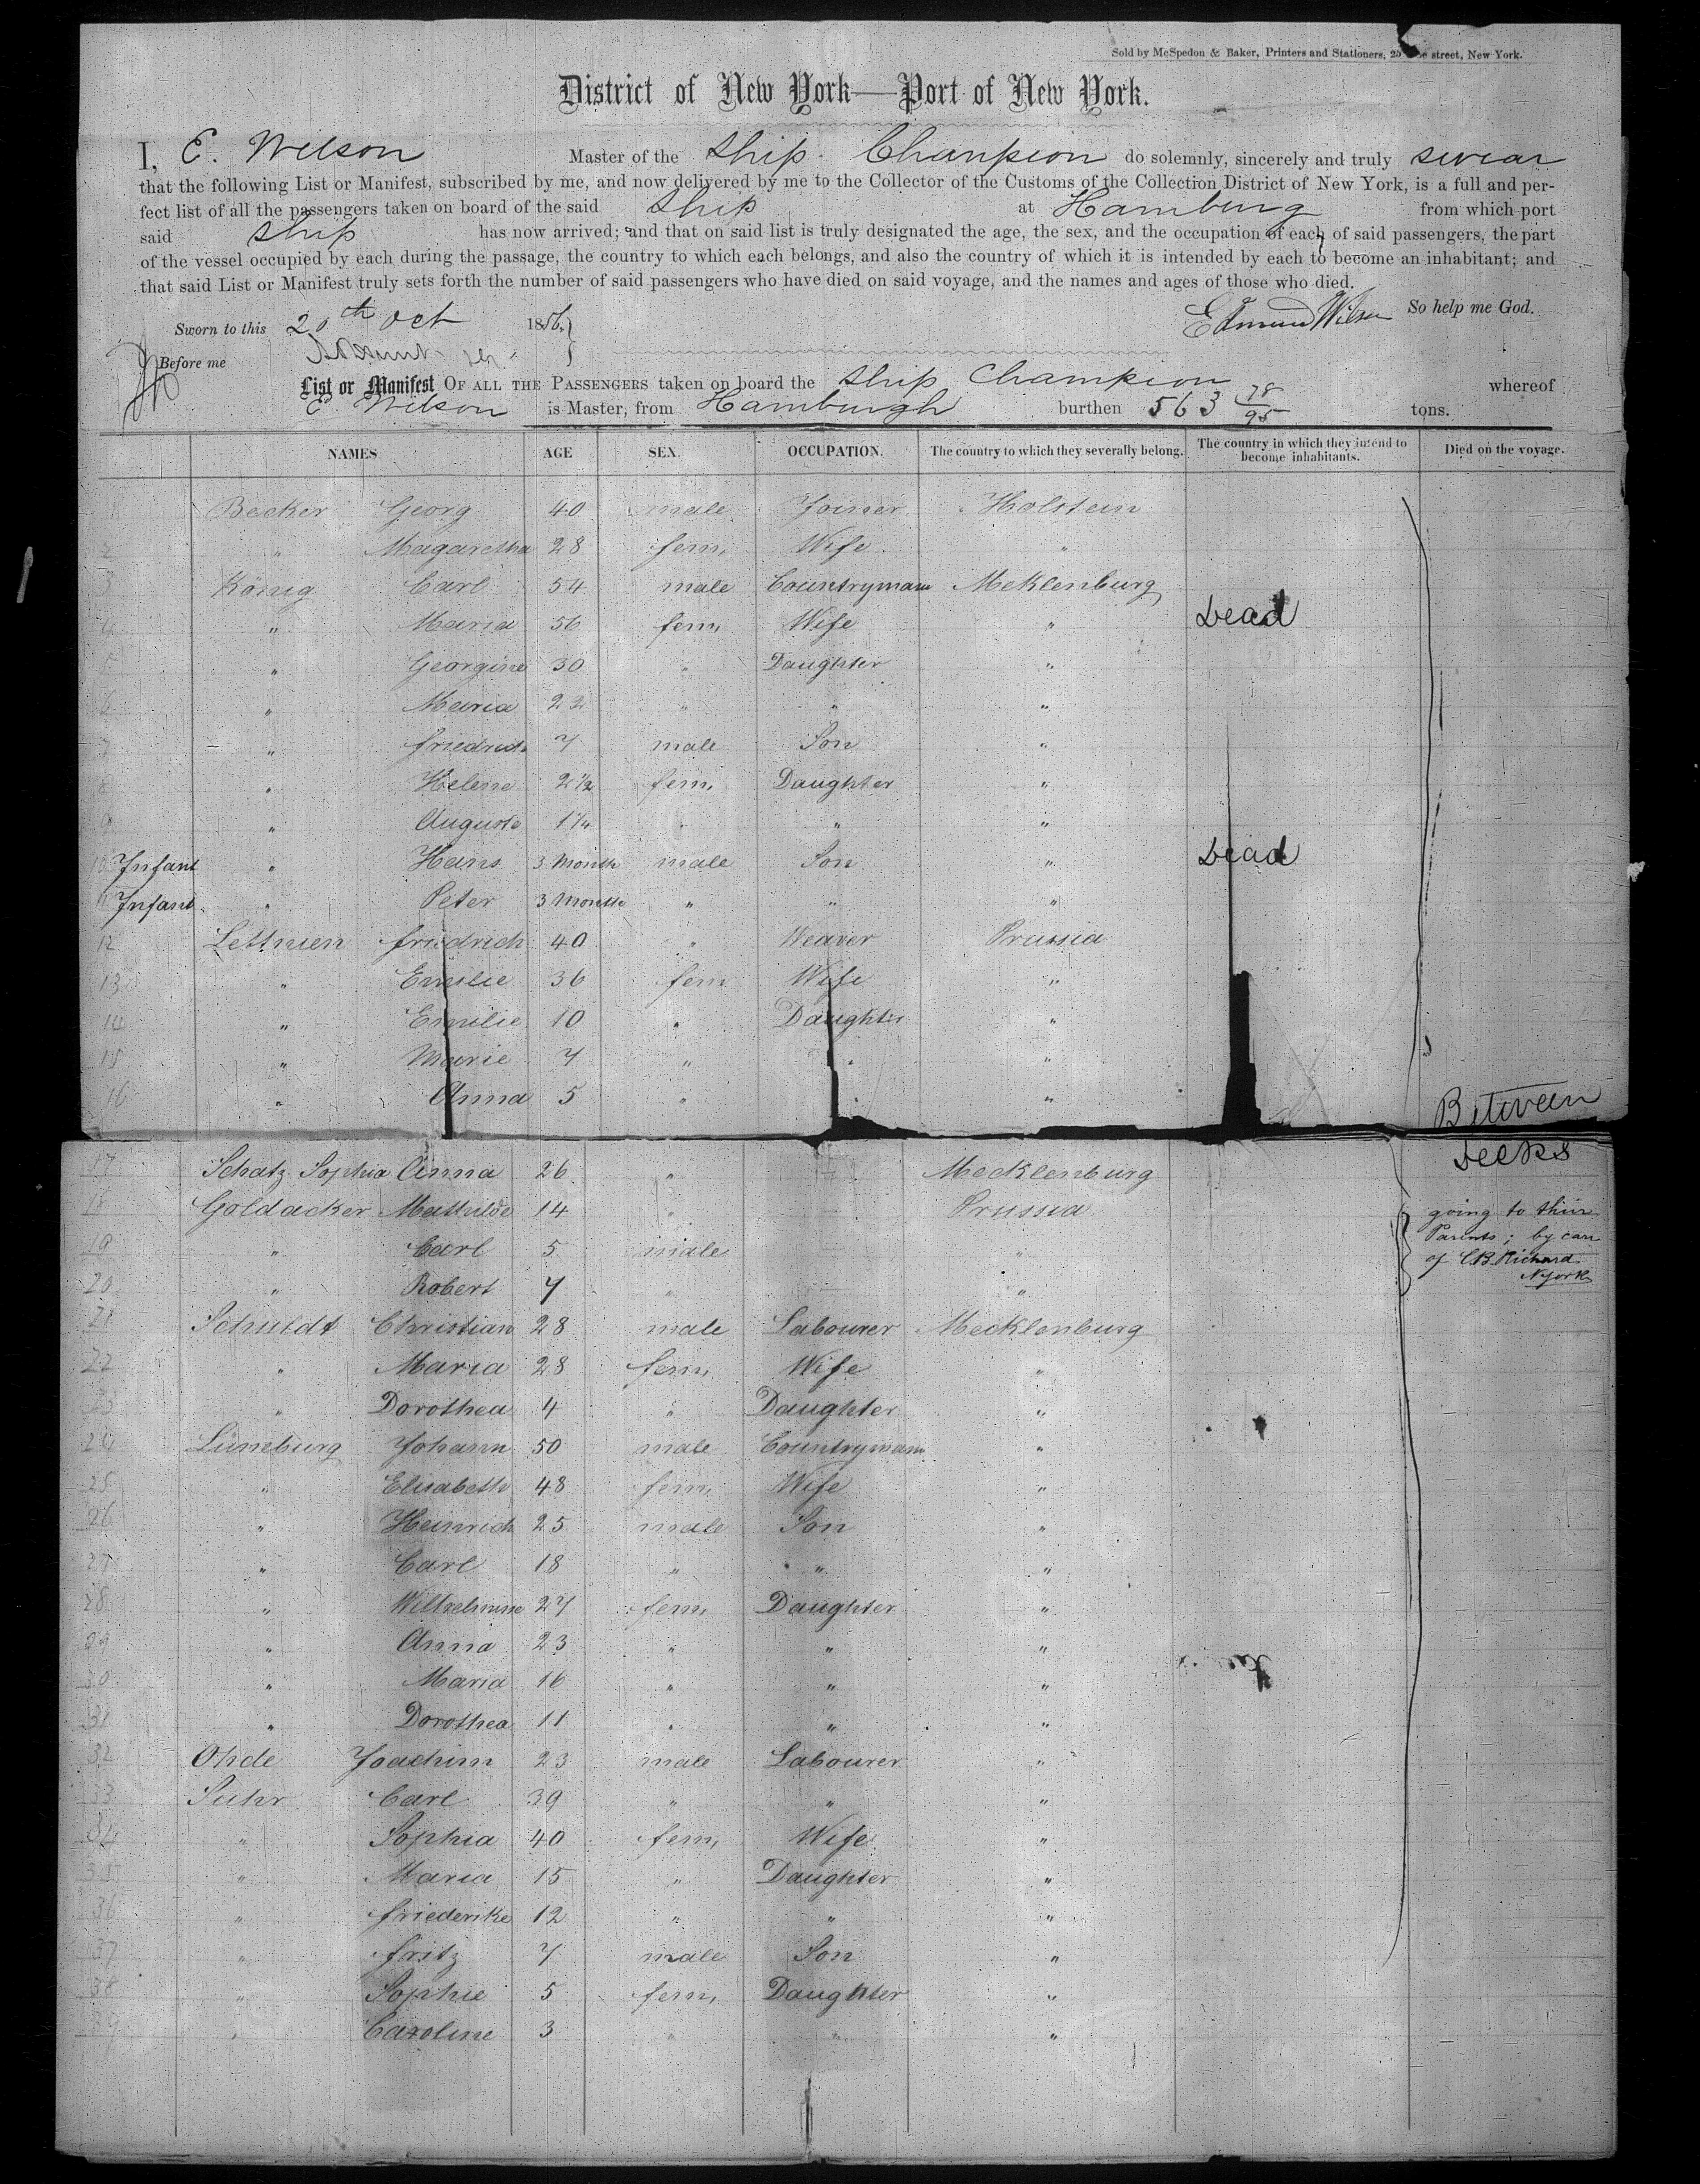 Sold by McSpedon & Baker, Printers and Stationers, 25 street, New York.
District of New York—Port of New York.
I, E. Wilson Master of the Ship Champion do solemnly, sincerely and truly swear
that the following List or Manifest, subscribed by me, and now delivered by me to the Collector of the Customs of the Collection District of New York, is a full and per-
fect list of all the passengers taken on board of the said Ship at Hamburg from which port
said Ship has now arrived; and that on said list is truly designated the age, the sex, and the occupation of each of said passengers, the part
of the vessel occupied by each during the passage, the country to which each belongs, and also the country of which it is intended by each to become an inhabitant; and
that said List or Manifest truly sets forth the number of said passengers who have died on said voyage, and the names and ages of those who died.
So help me God.
Edmund Wilson
Sworn to this 20th Oct 1856
Before me
List or Manifest OF ALL THE PASSENGERS taken on board the Ship Champion whereof
E. Wilson is Master, from Hamburgh burthen 563 78/95 tons.
NAMES AGE SEX. OCCUPATION. The country to which they severally belong. The country in which they intend to become inhabitants. Died on the voyage.
1 Becker Georg 40 male Joiner Holstein
2 " Magaretha 28 fem. Wife "
3 König Carl 54 male Countryman Meklenburg
4 " Maria 56 fem. Wife " Dead
5 " Georgine 30 " Daughter "
6 " Maria 22 " " "
7 " Friedrich 7 male Son "
8 " Helene 2½ fem. Daughter "
9 " Auguste 1¼ " " "
10 Infant " Hans 3 Month male Son " Dead
11 Infant " Peter 3 Months " " "
12 Lettnien Friedrich 40 " Weaver Prussia
13 " Emilie 36 fem Wife "
14 " Emilie 10 " Daughter "
15 " Marie 7 " " "
16 " Anna 5 " " "
Between
Decks
17 Schatz Sophia Anna 26 " Mecklenburg
18 Goldacker Mathilde 14 " Prussia going to their
19 " Carl 5 male " Parents; by care
of C.B. Richard
20 " Robert 7 " " NYork
21 Schuldt Christian 28 male Labourer Mecklenburg
22 " Maria 28 fem. Wife "
23 " Dorothea 4 " Daughter "
24 Lüneburg Johann 50 male Countryman "
25 " Elisabeth 48 fem. Wife "
26 " Heinrich 25 male Son "
27 " Carl 18 " " "
28 " Wilhelmine 27 fem. Daughter "
29 " Anna 23 " " "
30 " Maria 16 " " "
31 " Dorothea 11 " " "
32 Ohde Joachim 23 male Labourer "
33 Suhr Carl 39 " " "
34 " Sophia 40 fem. Wife "
35 " Maria 15 " Daughter "
36 " Friederike 12 " " "
37 " Fritz 7 male Son "
38 " Sophie 5 fem. Daughter "
39 " Caroline 3 " " "